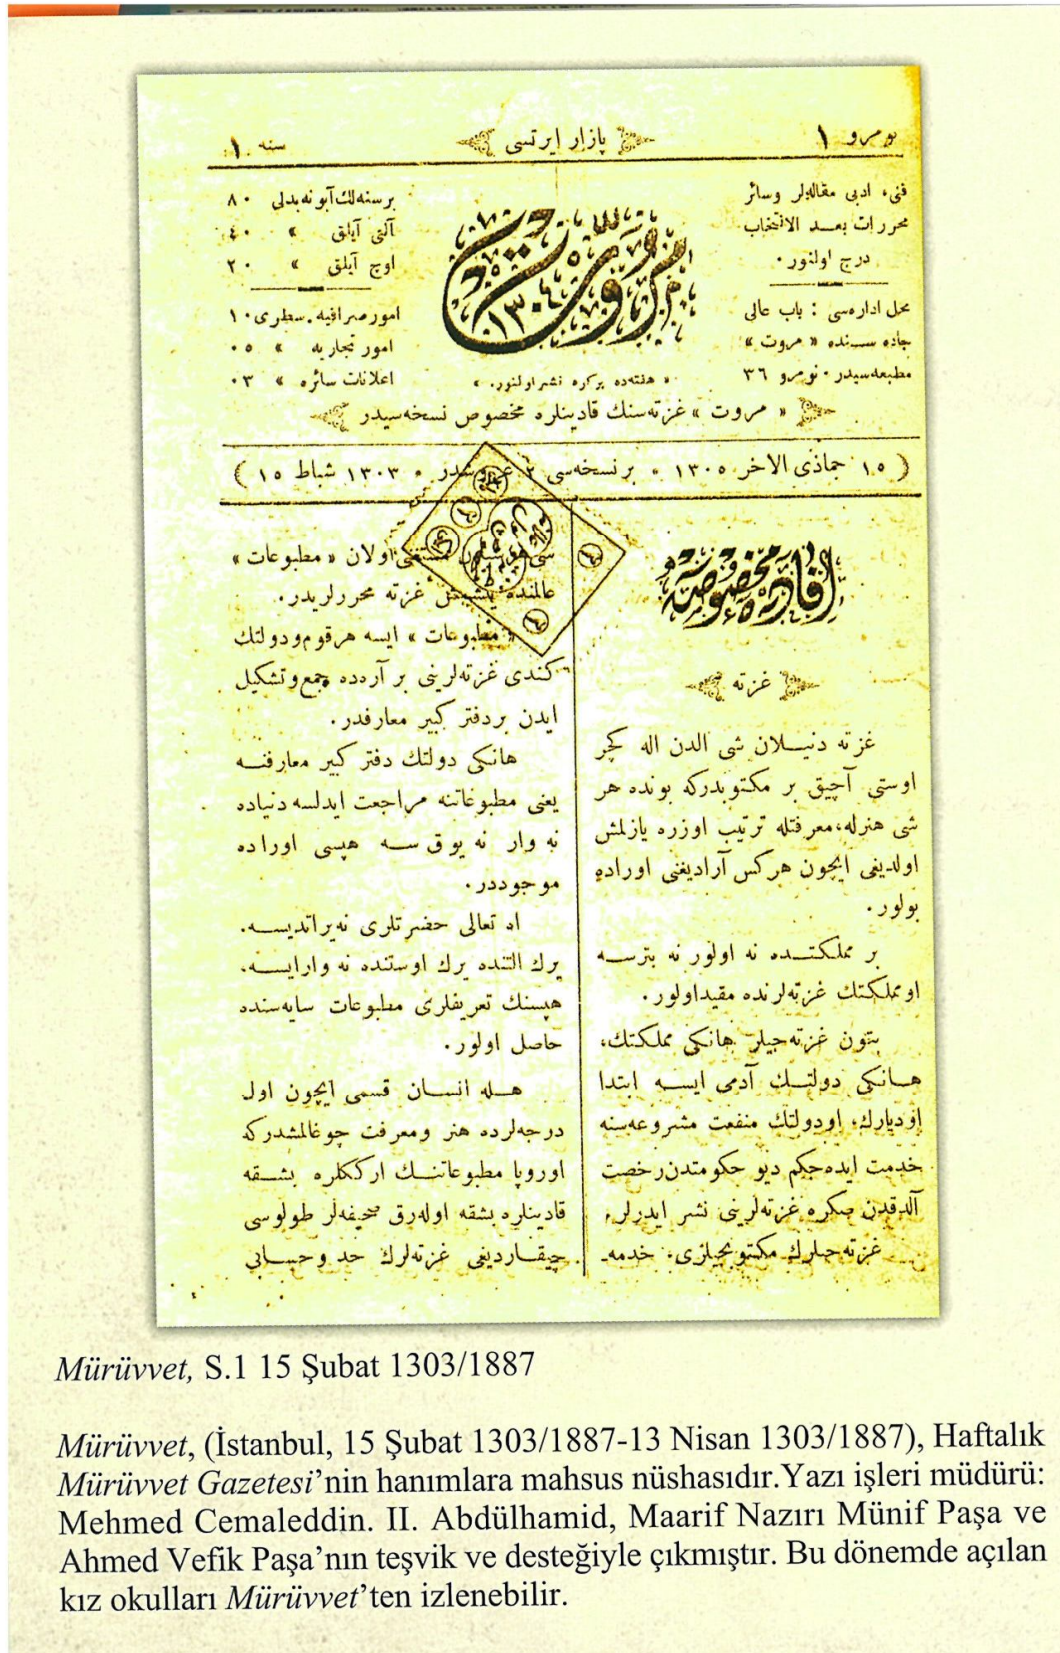 نومرو ١
پازار ايرتسى
سنه ١
فنى، ادبى مقاله‌لر وسائر
محررات بعـد الانتخاب
درج اولنور.
محل اداره‌سى : باب عالى
جاده سـنده « مروت »
مطبعه‌سيدر . نومرو ٣٦
مروت
١٣٠٤
« هفته‌ده بركره نشر اولنور. »
برسنه‌لك آبونه بدلى ٨٠
آلتى آيلق » ٤٠
اوچ آيلق » ٢٠
امور صرافيه . سطرى ١٠
امور تجاريه » ٠٥
اعلانات سائره » ٠٣
« مروت » غزته‌سنك قادينلره مخصوص نسخه‌سيدر
( ١٥ جماذى الاخر ١٣٠٥ . برنسخه‌سى ٢ غروشدر . ١٣٠٣ شباط ١٥ )
افاده مخصوصه
غزته
غزته دنيـلان شى الدن اله كچر
اوستى آچيق بر مكتوبدركه بونده هر
شى هنرله، معرفتله ترتيب اوزره يازلمش
اولديغى ايچون هركس آراديغنى اوراده
بولور.
بر مملكتـده نه اولور نه بترسـه
اومملكتك غزته‌لرنده مقيد اولور.
بتون غزته‌جيلر هانكى مملكتك،
هـانكى دولتـك آدمى ايسـه ابتدا
اوديارك، اودولتك منفعت مشروعه‌سنه
خدمت ايده‌جكم ديو حكومتدن رخصت
آلدقدن صكره غزته‌لرينى نشر ايدرلر.
غزته‌جيلرك مكتوبجيلرى، خدمه‌ـ
اولان « مطبوعات »
عالمنده يتشمش غزته محررلريدر.
« مطبوعات » ايسه هرقوم ودولتك
كندى غزته‌لرينى بر آره‌ده جمع وتشكيل
ايدن بردفتر كبير معارفدر.
هانكى دولتك دفتر كبير معارفنـه
يعنى مطبوعاتنه مراجعت ايدلسه دنياده
نه وار نه يوق سـه هپسى اوراده
موجوددر.
الله تعالى حضرتلرى نه يراتديسـه.
يرك التنده يرك اوستنده نه وارايسـه.
هپسنك تعريفلرى مطبوعات سايه‌سنده
حاصل اولور.
هـله انسـان قسمى ايچون اول
درجه‌لرده هنر ومعرفت چوغالمشدركه
اوروپا مطبوعاتنـك ارككلره بشـقه
قادينلره بشقه اوله‌رق صحيفه‌لر طولوسى
چيقـارديغى غزته‌لرك حد وحسـابى
Mürüvvet, S.1 15 Şubat 1303/1887
Mürüvvet, (İstanbul, 15 Şubat 1303/1887-13 Nisan 1303/1887), Haftalık
Mürüvvet Gazetesi’nin hanımlara mahsus nüshasıdır.Yazı işleri müdürü:
Mehmed Cemaleddin. II. Abdülhamid, Maarif Nazırı Münif Paşa ve
Ahmed Vefik Paşa’nın teşvik ve desteğiyle çıkmıştır. Bu dönemde açılan
kız okulları Mürüvvet’ten izlenebilir.